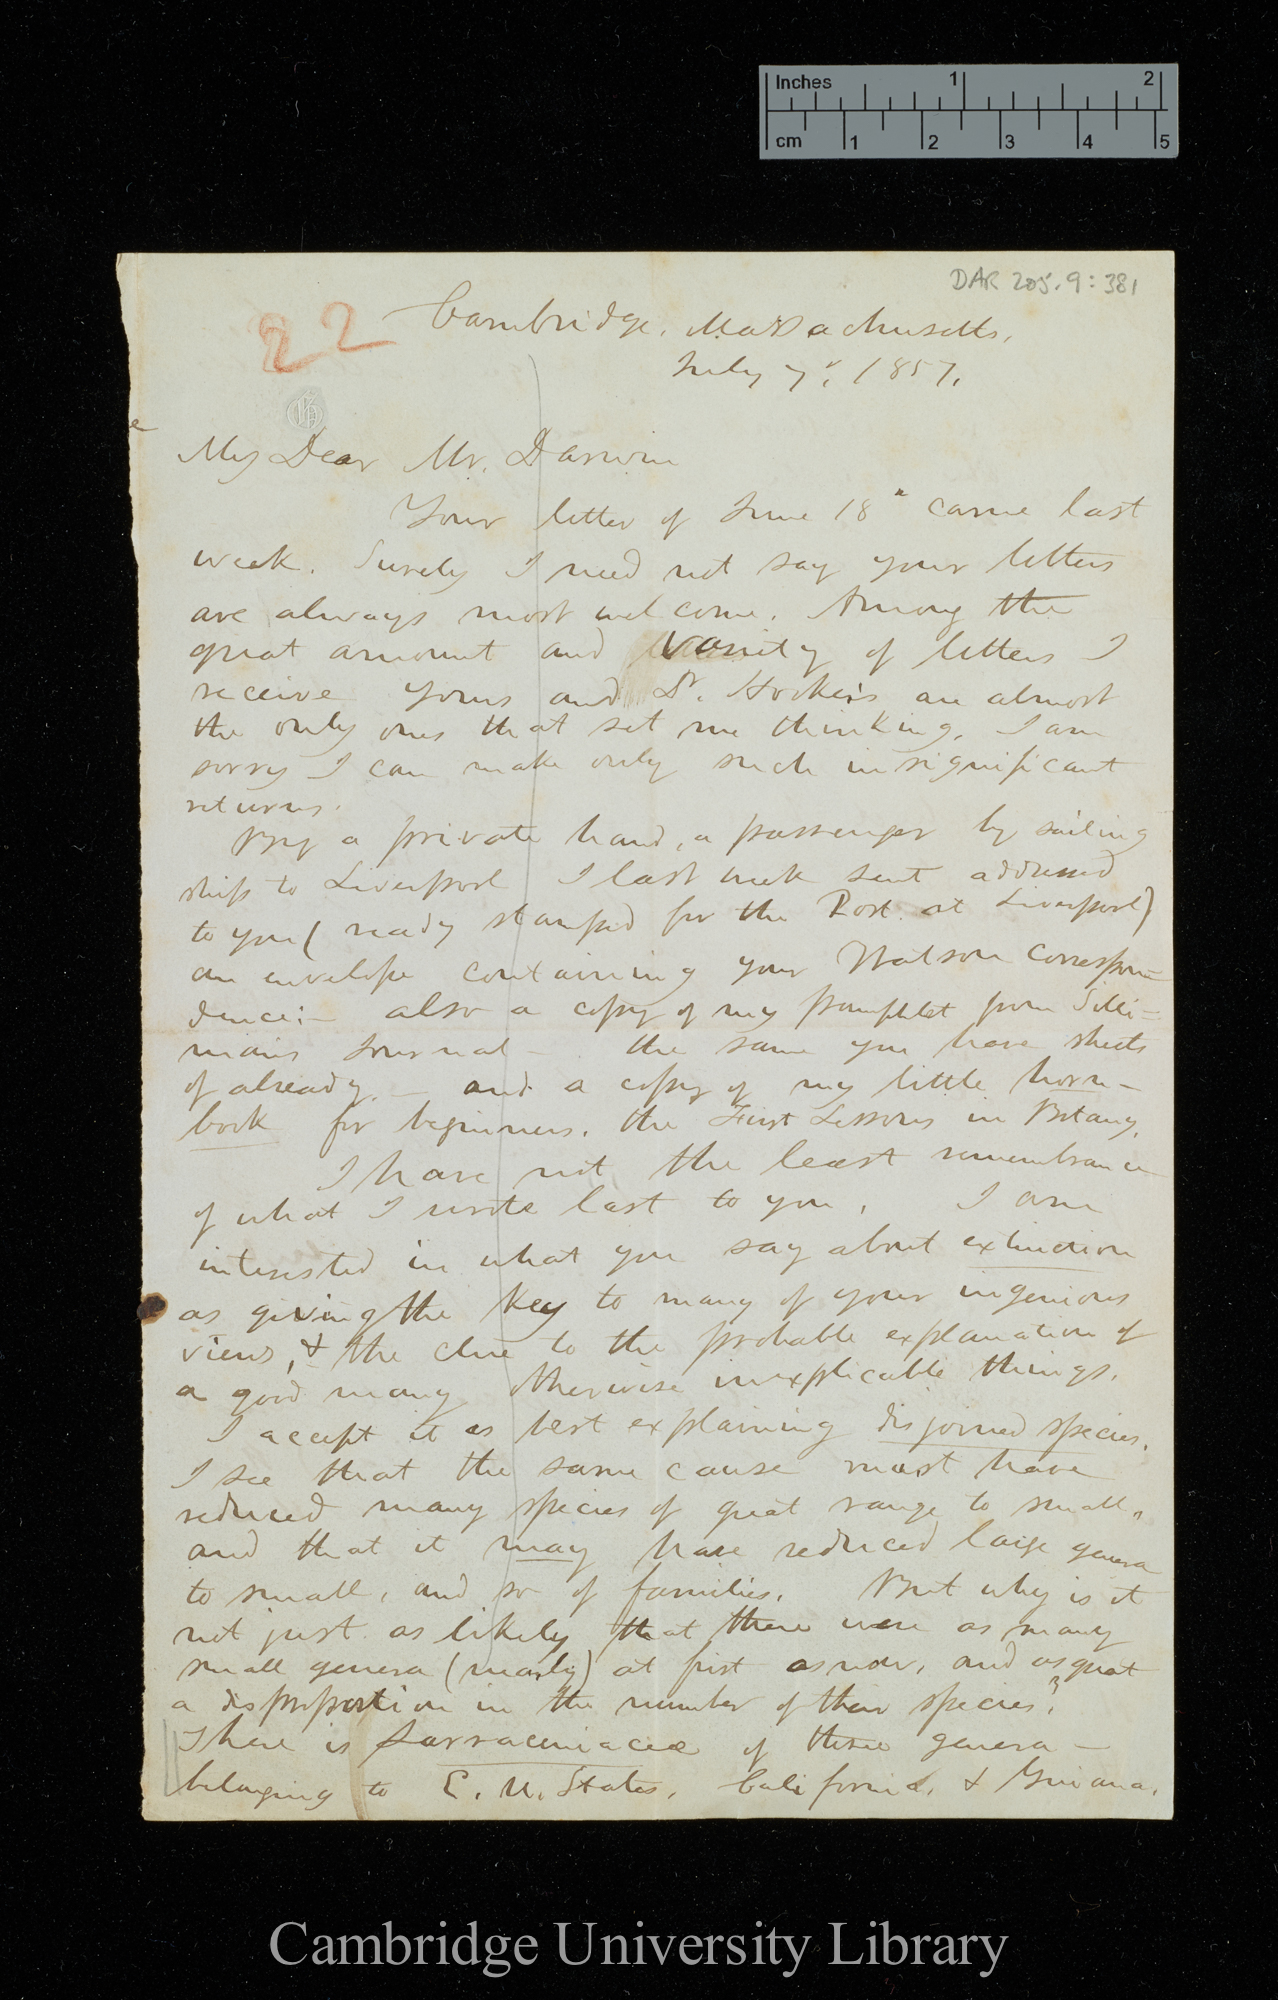 Inches 1 2
cm 1 2 3 4 5
DAR 205.9:381
22
Cambridge, Massachusetts,
July 7, 1857.
My Dear Mr. Darwin
Your letter of June 18th came last
week. Surely I need not say your letters
are always most welcome. Among the
great amount and vanity of letters I
receive yours and Dr. Hooker's are almost
the only ones that set me thinking. I am
sorry I can make only such insignificant
returns.
By a private hand, a passenger by sailing
ship to Liverpool I last week sent addressed
to you (ready stamped for the Post. at Liverpool)
an envelope containing your Watson Correspon-
dence:— also a copy of my pamphlet from Silli-
man's Journal — the same you have sheets
of already, — and a copy of my little horn-
book for beginners, the First Lessons in Botany.
I have not the least remembrance
of what I wrote last to you, I am
interested in what you say about extinction
as giving the key to many of your ingenious
views, & the clue to the probable explanation of
a good many otherwise inexplicable things.
I accept it as best explaining disjoined species.
I see that the same cause must have
reduced many species of great range to small,
and that it may have reduced large genera
to small, and so of families. But why is it
not just as likely that there were as many
small genera (nearly) at first as now, and as great
a disproportion in the number of their species?
There is Sarraceniaceæ of three genera —
belonging to E. U. States, California, & Guiana.
Cambridge University Library